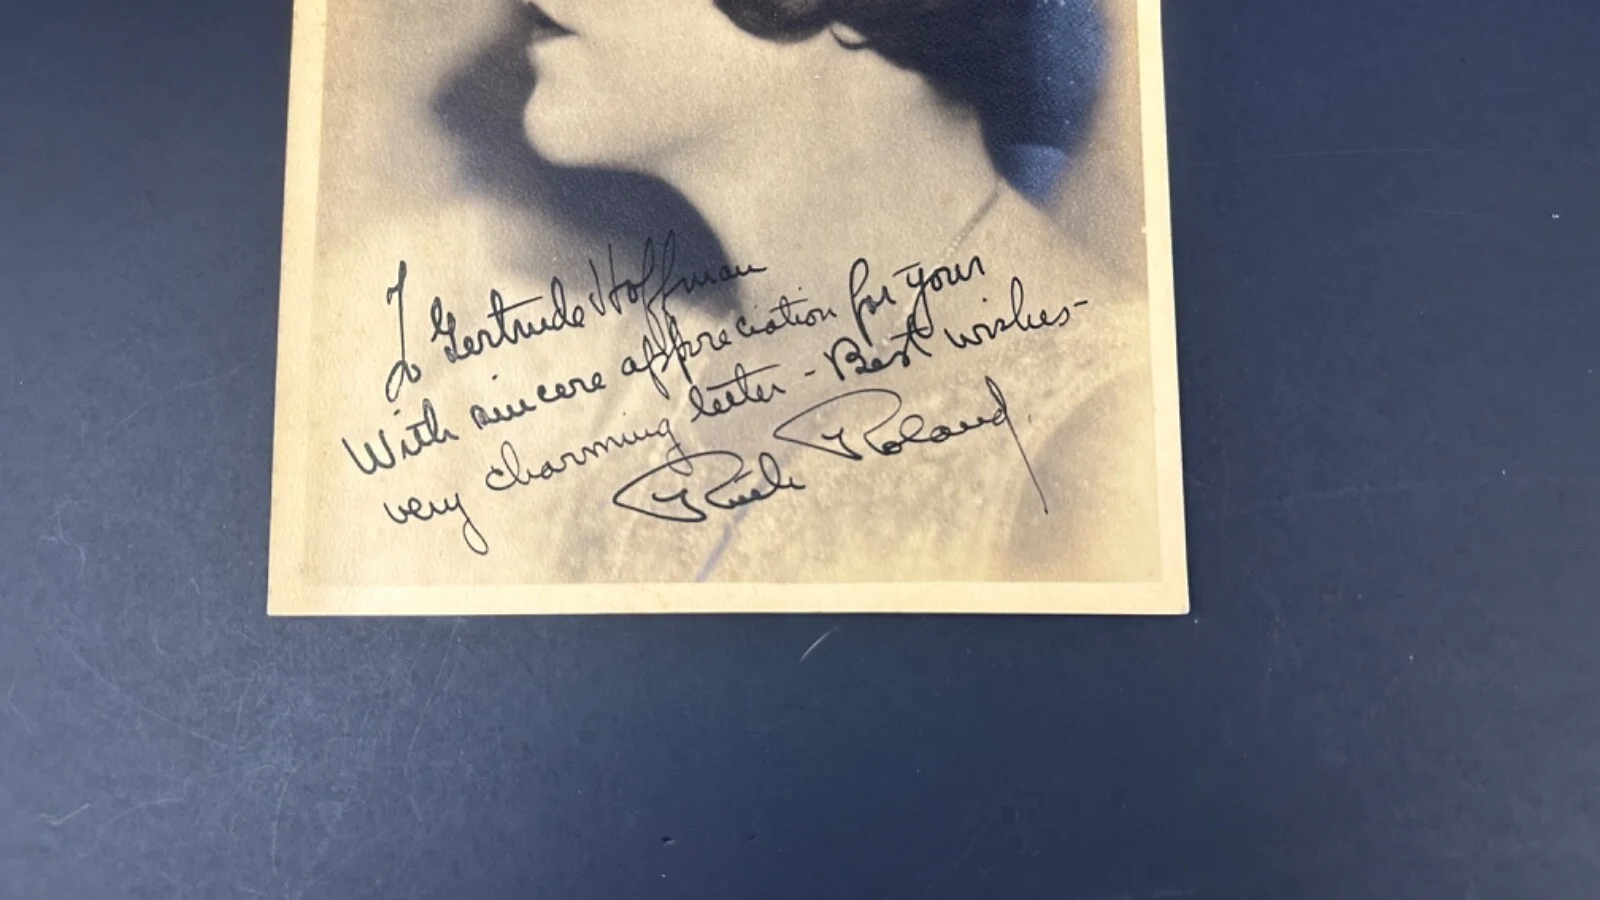 To Gertrude Hoffman
With sincere appreciation for your
very charming letter - Best wishes -
Ruth Roland.